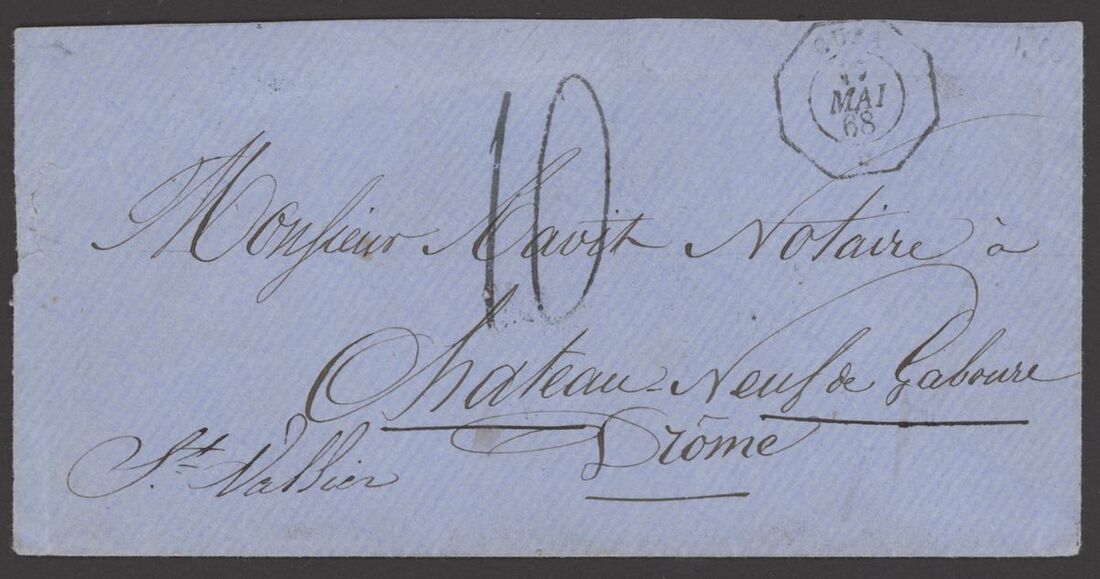 MAI
68
10
Monsieur Mavit Notaire à
Chateau-Neuf de Gaboure
Drôme
St. Vallier